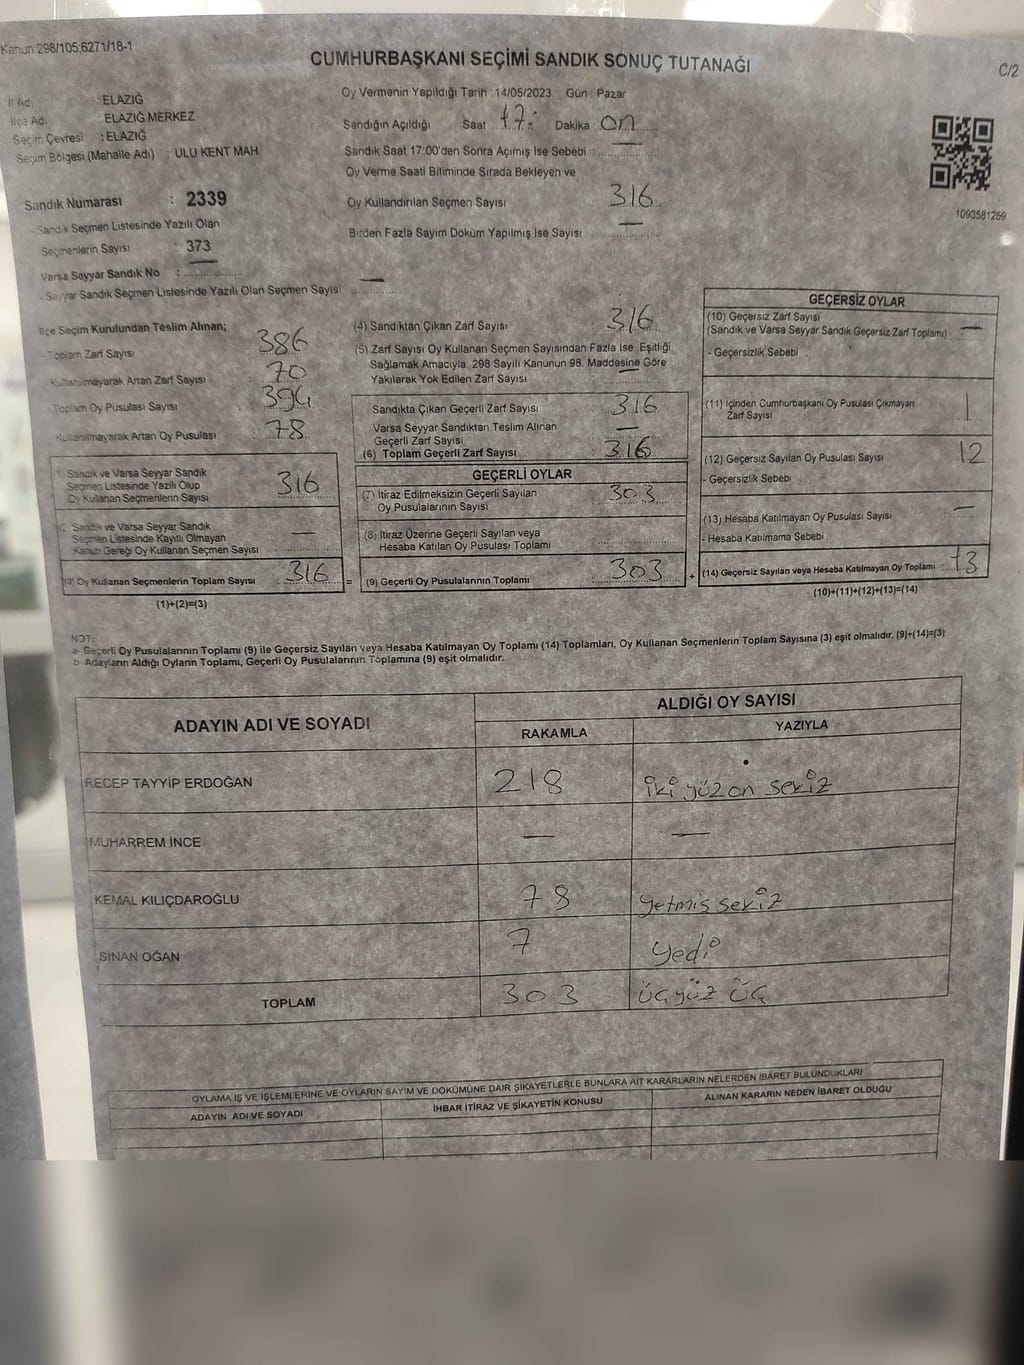 Kanun:298/105;6271/18-1
CUMHURBAŞKANI SEÇİMİ SANDIK SONUÇ TUTANAĞI
C/2
İl Adı : ELAZIĞ
İlçe Adı : ELAZIĞ MERKEZ
Seçim Çevresi : ELAZIĞ
Seçim Bölgesi (Mahalle Adı) : ULU KENT MAH.
Sandık Numarası : 2339
- Sandık Seçmen Listesinde Yazılı Olan
Seçmenlerin Sayısı : 373
Varsa Seyyar Sandık No : —
- Seyyar Sandık Seçmen Listesinde Yazılı Olan Seçmen Sayısı: —
Oy Vermenin Yapıldığı Tarih : 14/05/2023 Gün : Pazar
Sandığın Açıldığı Saat 17: Dakika : on
Sandık Saat 17:00'den Sonra Açımış İse Sebebi : —
Oy Verme Saati Bitiminde Sırada Bekleyen ve
Oy Kullandırılan Seçmen Sayısı 316
Birden Fazla Sayım Döküm Yapılmış İse Sayısı : —
1093581259
İlçe Seçim Kurulundan Teslim Alınan;
- Toplam Zarf Sayısı : 386
Kullanılmayarak Artan Zarf Sayısı : 70
Toplam Oy Pusulası Sayısı : 394
Kullanılmayarak Artan Oy Pusulası : 78
(1) Sandık ve Varsa Seyyar Sandık
Seçmen Listesinde Yazılı Olup
Oy Kullanan Seçmenlerin Sayısı 316
(2) Sandık ve Varsa Seyyar Sandık
Seçmen Listesinde Kayıtlı Olmayan
Kanun Gereği Oy Kullanan Seçmen Sayısı —
(3) Oy Kullanan Seçmenlerin Toplam Sayısı : 316 =
(1)+(2)=(3)
(4) Sandıktan Çıkan Zarf Sayısı : 316
(5) Zarf Sayısı Oy Kullanan Seçmen Sayısından Fazla İse, Eşitliği
Sağlamak Amacıyla, 298 Sayılı Kanunun 98. Maddesine Göre
Yakılarak Yok Edilen Zarf Sayısı —
Sandıkta Çıkan Geçerli Zarf Sayısı : 316
Varsa Seyyar Sandıktan Teslim Alınan
Geçerli Zarf Sayısı —
(6) Toplam Geçerli Zarf Sayısı : 316
GEÇERLİ OYLAR
(7) İtiraz Edilmeksizin Geçerli Sayılan
Oy Pusulalarının Sayısı : 303
(8) İtiraz Üzerine Geçerli Sayılan veya
Hesaba Katılan Oy Pusulası Toplamı
(9) Geçerli Oy Pusulalarının Toplamı : 303 +
GEÇERSİZ OYLAR
(10) Geçersiz Zarf Sayısı
(Sandık ve Varsa Seyyar Sandık Geçersiz Zarf Toplamı) : —
- Geçersizlik Sebebi :
(11) İçinden Cumhurbaşkanı Oy Pusulası Çıkmayan
Zarf Sayısı 1
(12) Geçersiz Sayılan Oy Pusulası Sayısı : 12
- Geçersizlik Sebebi
(13) Hesaba Katılmayan Oy Pusulası Sayısı : —
- Hesaba Katılmama Sebebi :
(14) Geçersiz Sayılan veya Hesaba Katılmayan Oy Toplamı : 13
(10)+(11)+(12)+(13)=(14)
NOT:
a- Geçerli Oy Pusulalarının Toplamı (9) ile Geçersiz Sayılan veya Hesaba Katılmayan Oy Toplamı (14) Toplamları, Oy Kullanan Seçmenlerin Toplam Sayısına (3) eşit olmalıdır. (9)+(14)=(3)
b- Adayların Aldığı Oyların Toplamı, Geçerli Oy Pusulalarının Toplamına (9) eşit olmalıdır.
ADAYIN ADI VE SOYADI ALDIĞI OY SAYISI
RAKAMLA YAZIYLA
RECEP TAYYİP ERDOĞAN 218 iki yüz on sekiz
MUHARREM İNCE — —
KEMAL KILIÇDAROĞLU 78 yetmiş sekiz
SİNAN OĞAN 7 yedi
TOPLAM 303 üçyüz üç
OYLAMA İŞ VE İŞLEMLERİNE VE OYLARIN SAYIM VE DÖKÜMÜNE DAİR ŞİKAYETLERLE BUNLARA AİT KARARLARIN NELERDEN İBARET BULUNDUKLARI
ADAYIN ADI VE SOYADI İHBAR İTİRAZ VE ŞİKAYETİN KONUSU ALINAN KARARIN NEDEN İBARET OLDUĞU